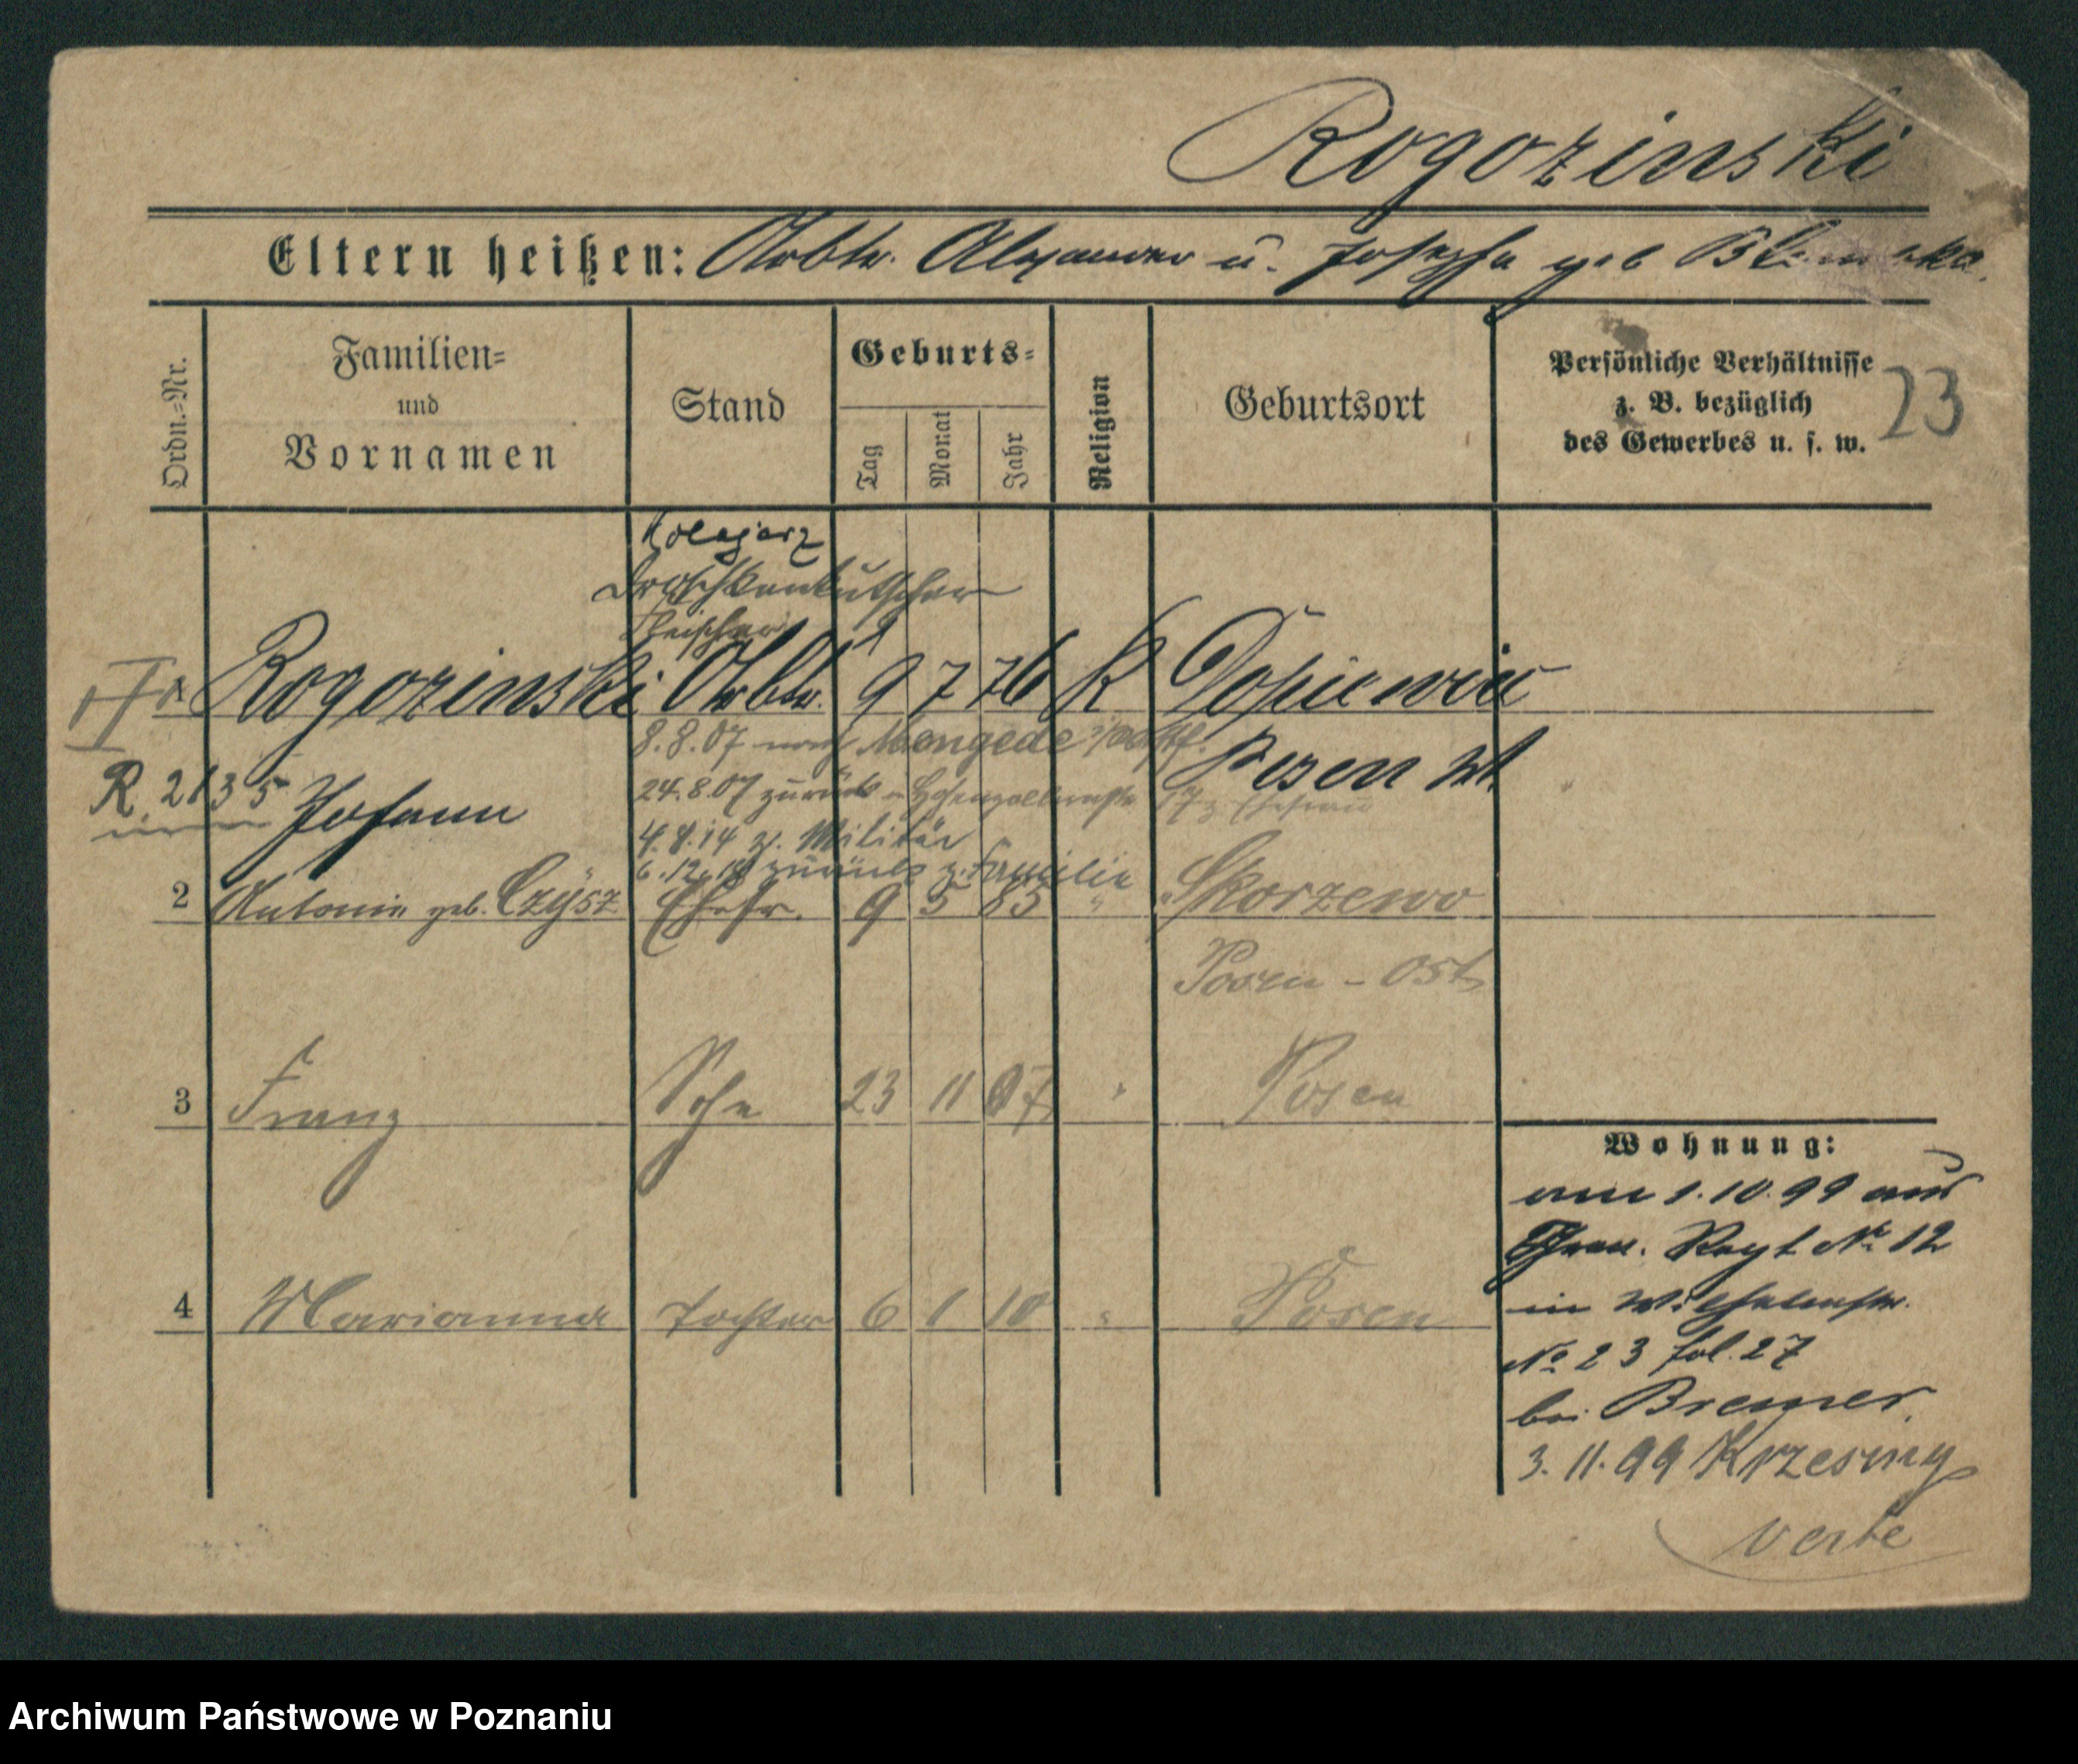 Rogozinski
Eltern heißen: Arbtr. Alexander u. Josepha geb
Ordn.=Nr.
Familien=
und
Vornamen
Stand
Geburts=
Tag
Monat
Jahr
Religion
Geburtsort
Persönliche Verhältnisse
z. B. bezüglich
des Gewerbes u. s. w.
23
Kolejarz
Droschkenkutscher
Fleischer
Rogozinski Arbtr. 9 7 76 K Dopiewiec
8.8.07 nach Mengede
Posen Wt
R. 2135 Johann
24.8.07 zurück
4.8.14 z. Militär
6.12.18 zurück z. Familie
2 Antonie geb. Czÿsz Ehefr. 9 5 85 " Skorzewo
Posen - Ost
3 Franz Sohn 23 11 07 " Posen
4 Marianna Tochter 6 1 10 " Posen
Wohnung:
am 1.10.99 aus
Gren. Regt No 12
in Wilhelmstr.
No 23 fol. 27
bei Bremer.
3. 11. 99 Krzesiny
verte
Archiwum Państwowe w Poznaniu